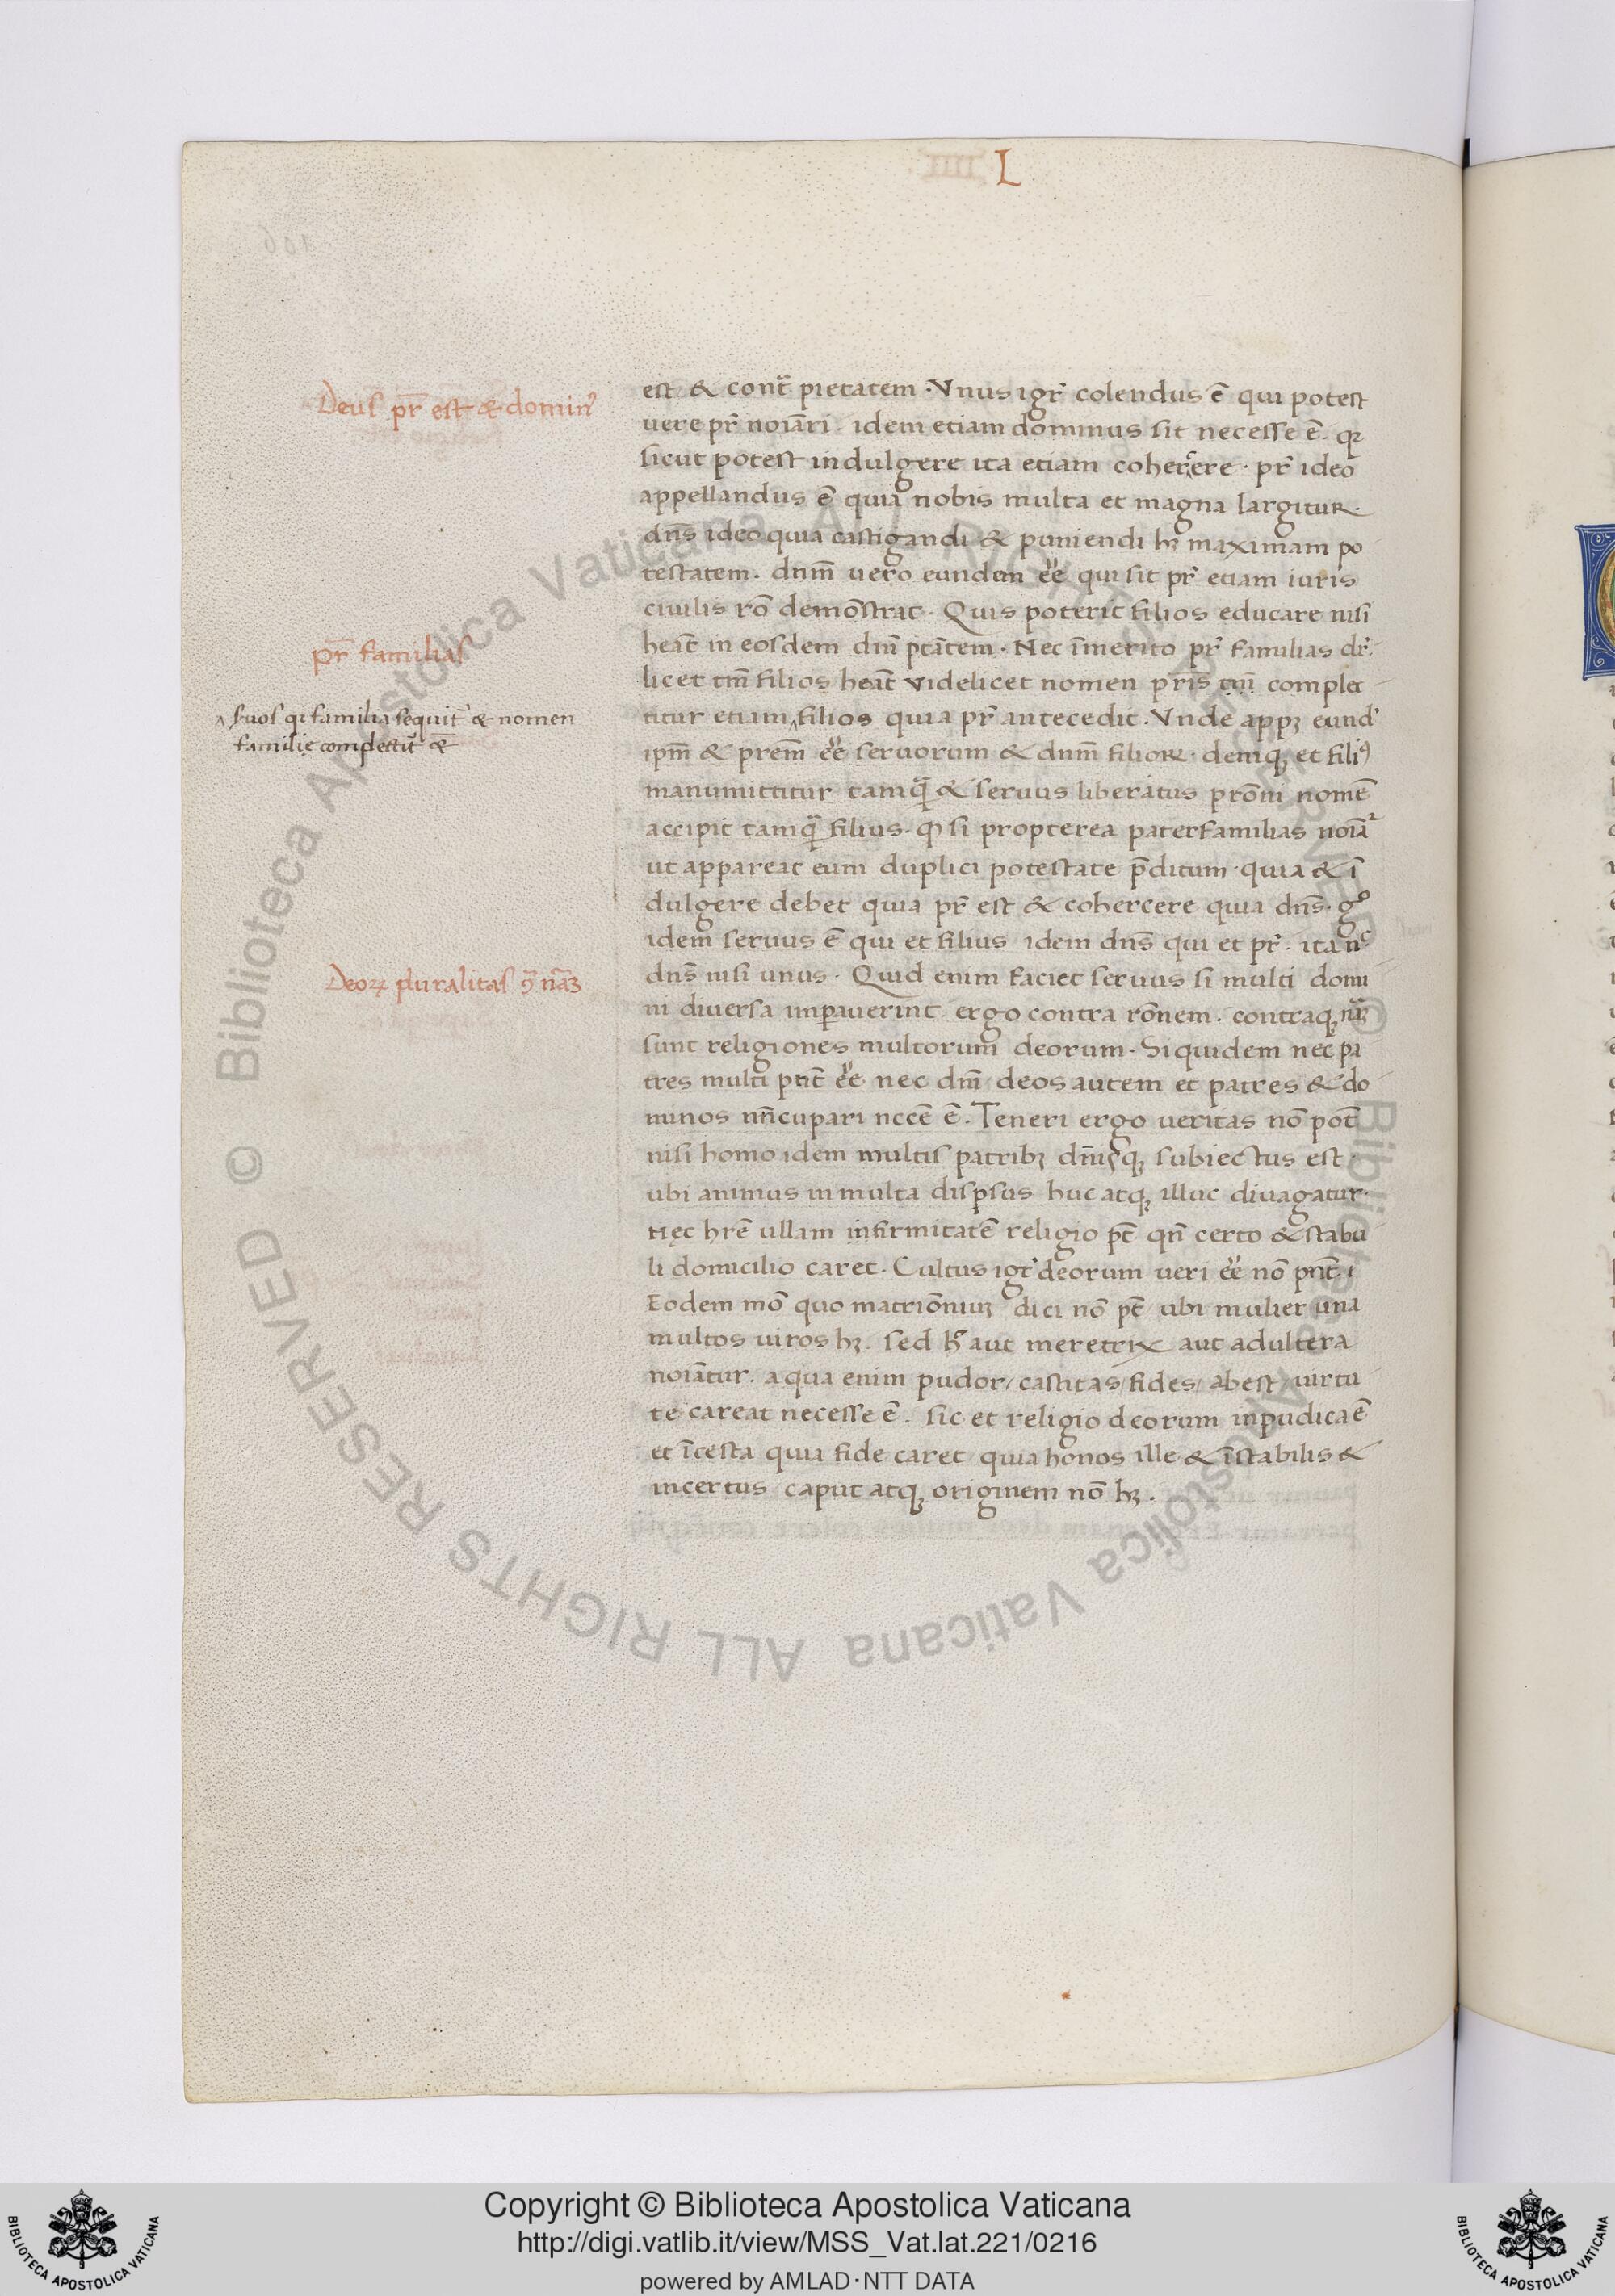 L
Deus pr̄ est & domin⁹
pr̄ familias
suos qi familia sequit̄ & nomen
familię complectit̄ &
Deoꝝ pluralitas ꝯ nāꝫ
est & cont̄ pietatem · Vnus igr̄ colendus ē qui potest
uere pr̄ noīari · idem etiam dominus sit necesse ē · qꝫ
sicut potest indulgere ita etiam cohercere · pr̄ ideo
appellandus ē quia nobis multa et magna largitur ·
dn̄s ideo quia castigandi & puniendi hꝫ maximam po
testatem · dnm̄ uero eundem ēē qui sit pr̄ etiam iuris
ciuilis rō demōstrat · Quis poterit filios educare nisi
heāt in eosdem dnī ptātem · Nec īmerito pr̄ familias dr̄ ·
licet tm̄ filios heāt videlicet nomen pr̄is tm̄ complec
titur etiam filios quia pr̄ antecedit · Vnde appꝫ eund'
ipm̄ & prem̄ ēē seruorum & dnm̄ filioꝝ · deniqꝫ et fili⁹
manumittitur tamq̄ & seruus liberatus prōni nomē
accipit tamq̄ filius · ꝙ si propterea paterfamilias noīaᷣ
ut appareat eum duplici potestate p̄ditum · quia & ī
dulgere debet quia pr̄ est & cohercere quia dn̄s · gͦ
idem seruus ē qui et filius idem dn̄s qui et pr̄ · ita nͨ
dn̄s nisi unus · Quid enim faciet seruus si multi domi
ni diuersa imꝑauerint ergo contra rōnem · contraqꝫ nāꝫ
sunt religiones multorum deorum · Siquidem nec pa
tres multi pn̄t ēē nec dnī deos autem et patres & do
minos nn̄cupari nccē ē · Teneri ergo ueritas nō pot̄
nisi homo idem multis patribꝫ dn̄isqꝫ subiectus est
ubi animus in multa disꝑsus huc atqꝫ illuc diuagatur ·
nęc hr̄e ullam infirmitatē religio pt̄ qn̄ certo & stabi
li domicilio caret · Cultus igr̄ deorum ueri ēē nō pn̄t · i
Eodem mō quo matriōniuꝫ dici nō pt̄ ubi mulier una
multos uiros hꝫ · sed h̄ aut meretrix aut adultera
noīatur · a qua enim pudor / castitas / fides / abest uirtu
te careat necesse ē · sic et religio deorum inpudica ē
et īcesta quia fide caret quia honos ille & īstabilis &
incertus caput atqꝫ originem nō hꝫ ·
© Biblioteca Apostolica Vaticana ALL RIGHTS RESERVED
© Biblioteca Apostolica Vaticana ALL RIGHTS RESERVED
BIBLIOTECA APOSTOLICA VATICANA
Copyright © Biblioteca Apostolica Vaticana
http://digi.vatlib.it/view/MSS_Vat.lat.221/0216
powered by AMLAD·NTT DATA
BIBLIOTECA APOSTOLICA VATICANA